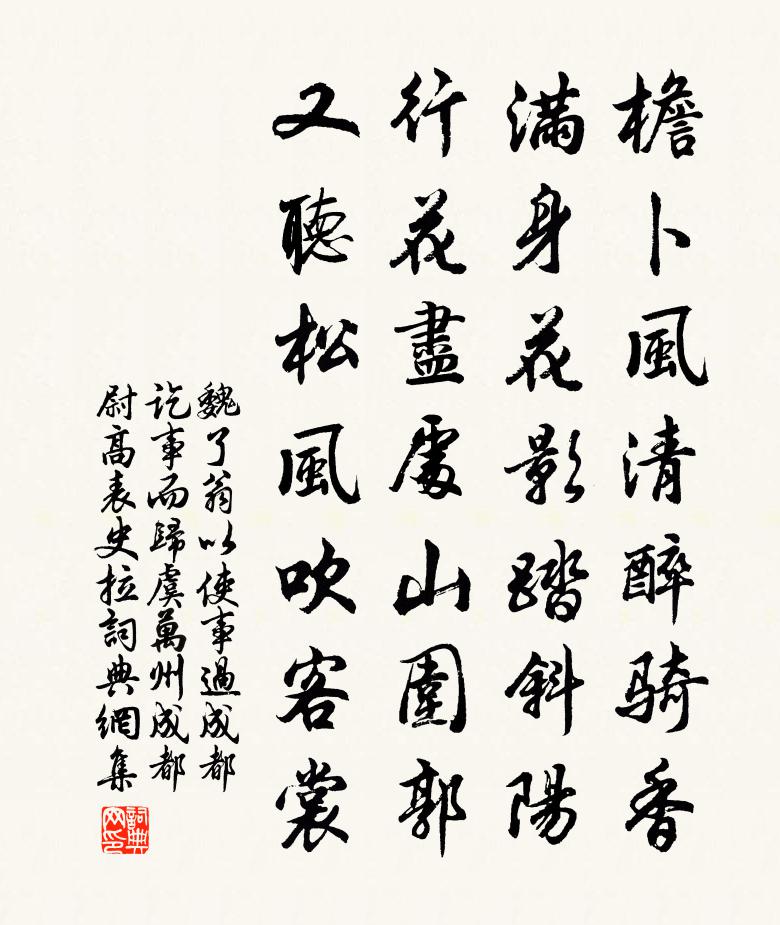 檐卜風清醉骑香
滿身花影踏斜陽
行花盡處山圍郭
又聽松風吹客裳
魏了翁以使事過成都
訖事而歸虞萬州成都
尉高表史拉詞典網集
詞典
网印